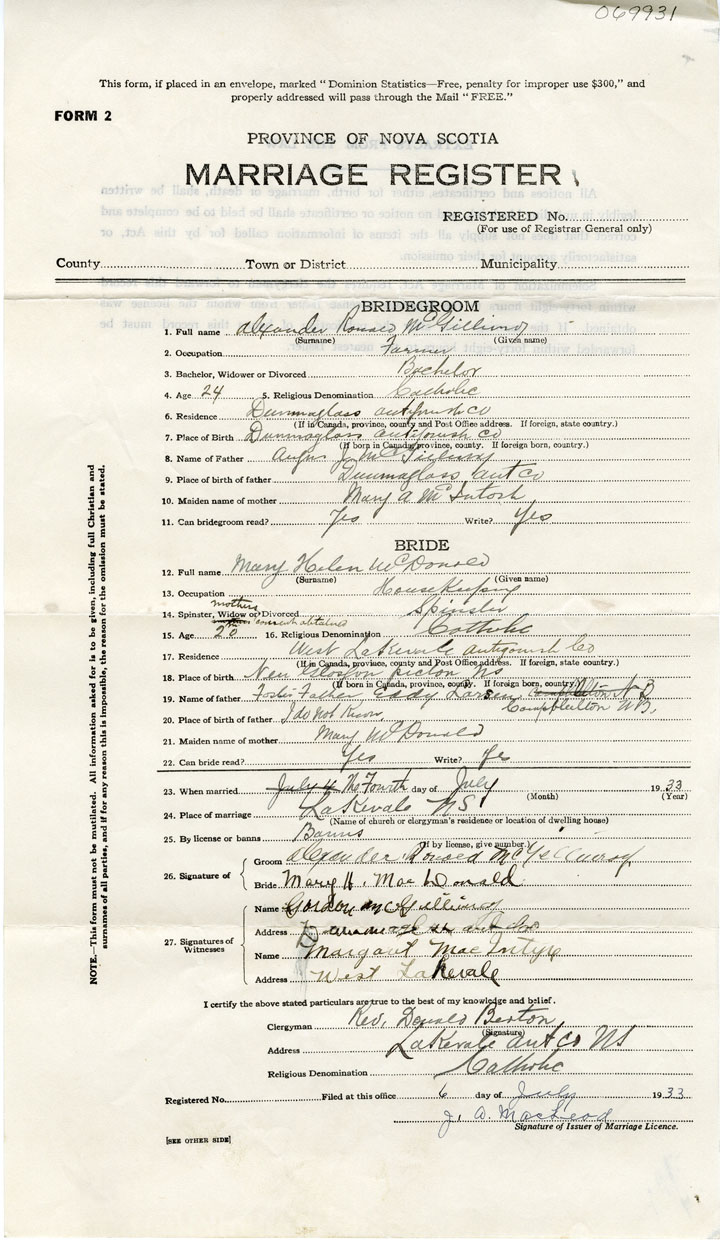 069931
This form, if placed in an envelope, marked "Dominion Statistics—Free, penalty for improper use $300," and
properly addressed will pass through the Mail "FREE."
FORM 2
PROVINCE OF NOVA SCOTIA
MARRIAGE REGISTER
REGISTERED No.
(For use of Registrar General only)
County Town or District Municipality
BRIDEGROOM
1. Full name Alexander Ronald McGillivray
(Surname) (Given name)
2. Occupation Farmer
3. Bachelor, Widower or Divorced Bachelor
4. Age 24 5. Religious Denomination Catholic
6. Residence Dunmaglass Antigonish Co
(If in Canada, province, county and Post Office address. If foreign, state country.)
7. Place of Birth Dunmaglass Antigonish Co
(If born in Canada, province, county. If foreign born, country.)
8. Name of Father Angus J. McGillivray
9. Place of birth of father Dunmaglass Ant Co
10. Maiden name of mother Mary A McIntosh
11. Can bridegroom read? Yes Write? Yes
BRIDE
12. Full name Mary Helen McDonald
(Surname) (Given name)
13. Occupation House Keeping
14. Spinster, Widow or Divorced Spinster
mothers consent obtained
15. Age 20 16. Religious Denomination Catholic
17. Residence West LaKevale Antigonish Co
(If in Canada, province, county and Post Office address. If foreign, state country.)
18. Place of birth New Glasgow Pictou NS
(If born in Canada, province, county. If foreign born, country.)
19. Name of father Foster Father Eddy Larsen
Campbellton NB.
20. Place of birth of father I do not Know
21. Maiden name of mother Mary McDonald
22. Can bride read? Yes Write? Yes
23. When married July 4 The Fourth day of July 1933
(Month) (Year)
24. Place of marriage LaKevale NS
(Name of church or clergyman's residence or location of dwelling house)
25. By license or banns Banns
(If by license, give number.)
26. Signature of Groom Alexander Ronald McGillivray
Bride Mary H. MacDonald
27. Signatures of Witnesses Name Gordon McGillivray
Address Dunmaglass Ant Co
Name Margaret MacIntyre
Address West Lakevale
I certify the above stated particulars are true to the best of my knowledge and belief.
Clergyman Rev. Donald Benton
(Signature)
Address LaKevale Ant Co NS
Religious Denomination Catholic
Registered No. Filed at this office 6 day of July 1933
J. A. MacLeod
Signature of Issuer of Marriage Licence.
[SEE OTHER SIDE]
NOTE.—This form must not be mutilated. All information asked for is to be given, including full Christian and
surnames of all parties, and if for any reason this is impossible, the reason for the omission must be stated.